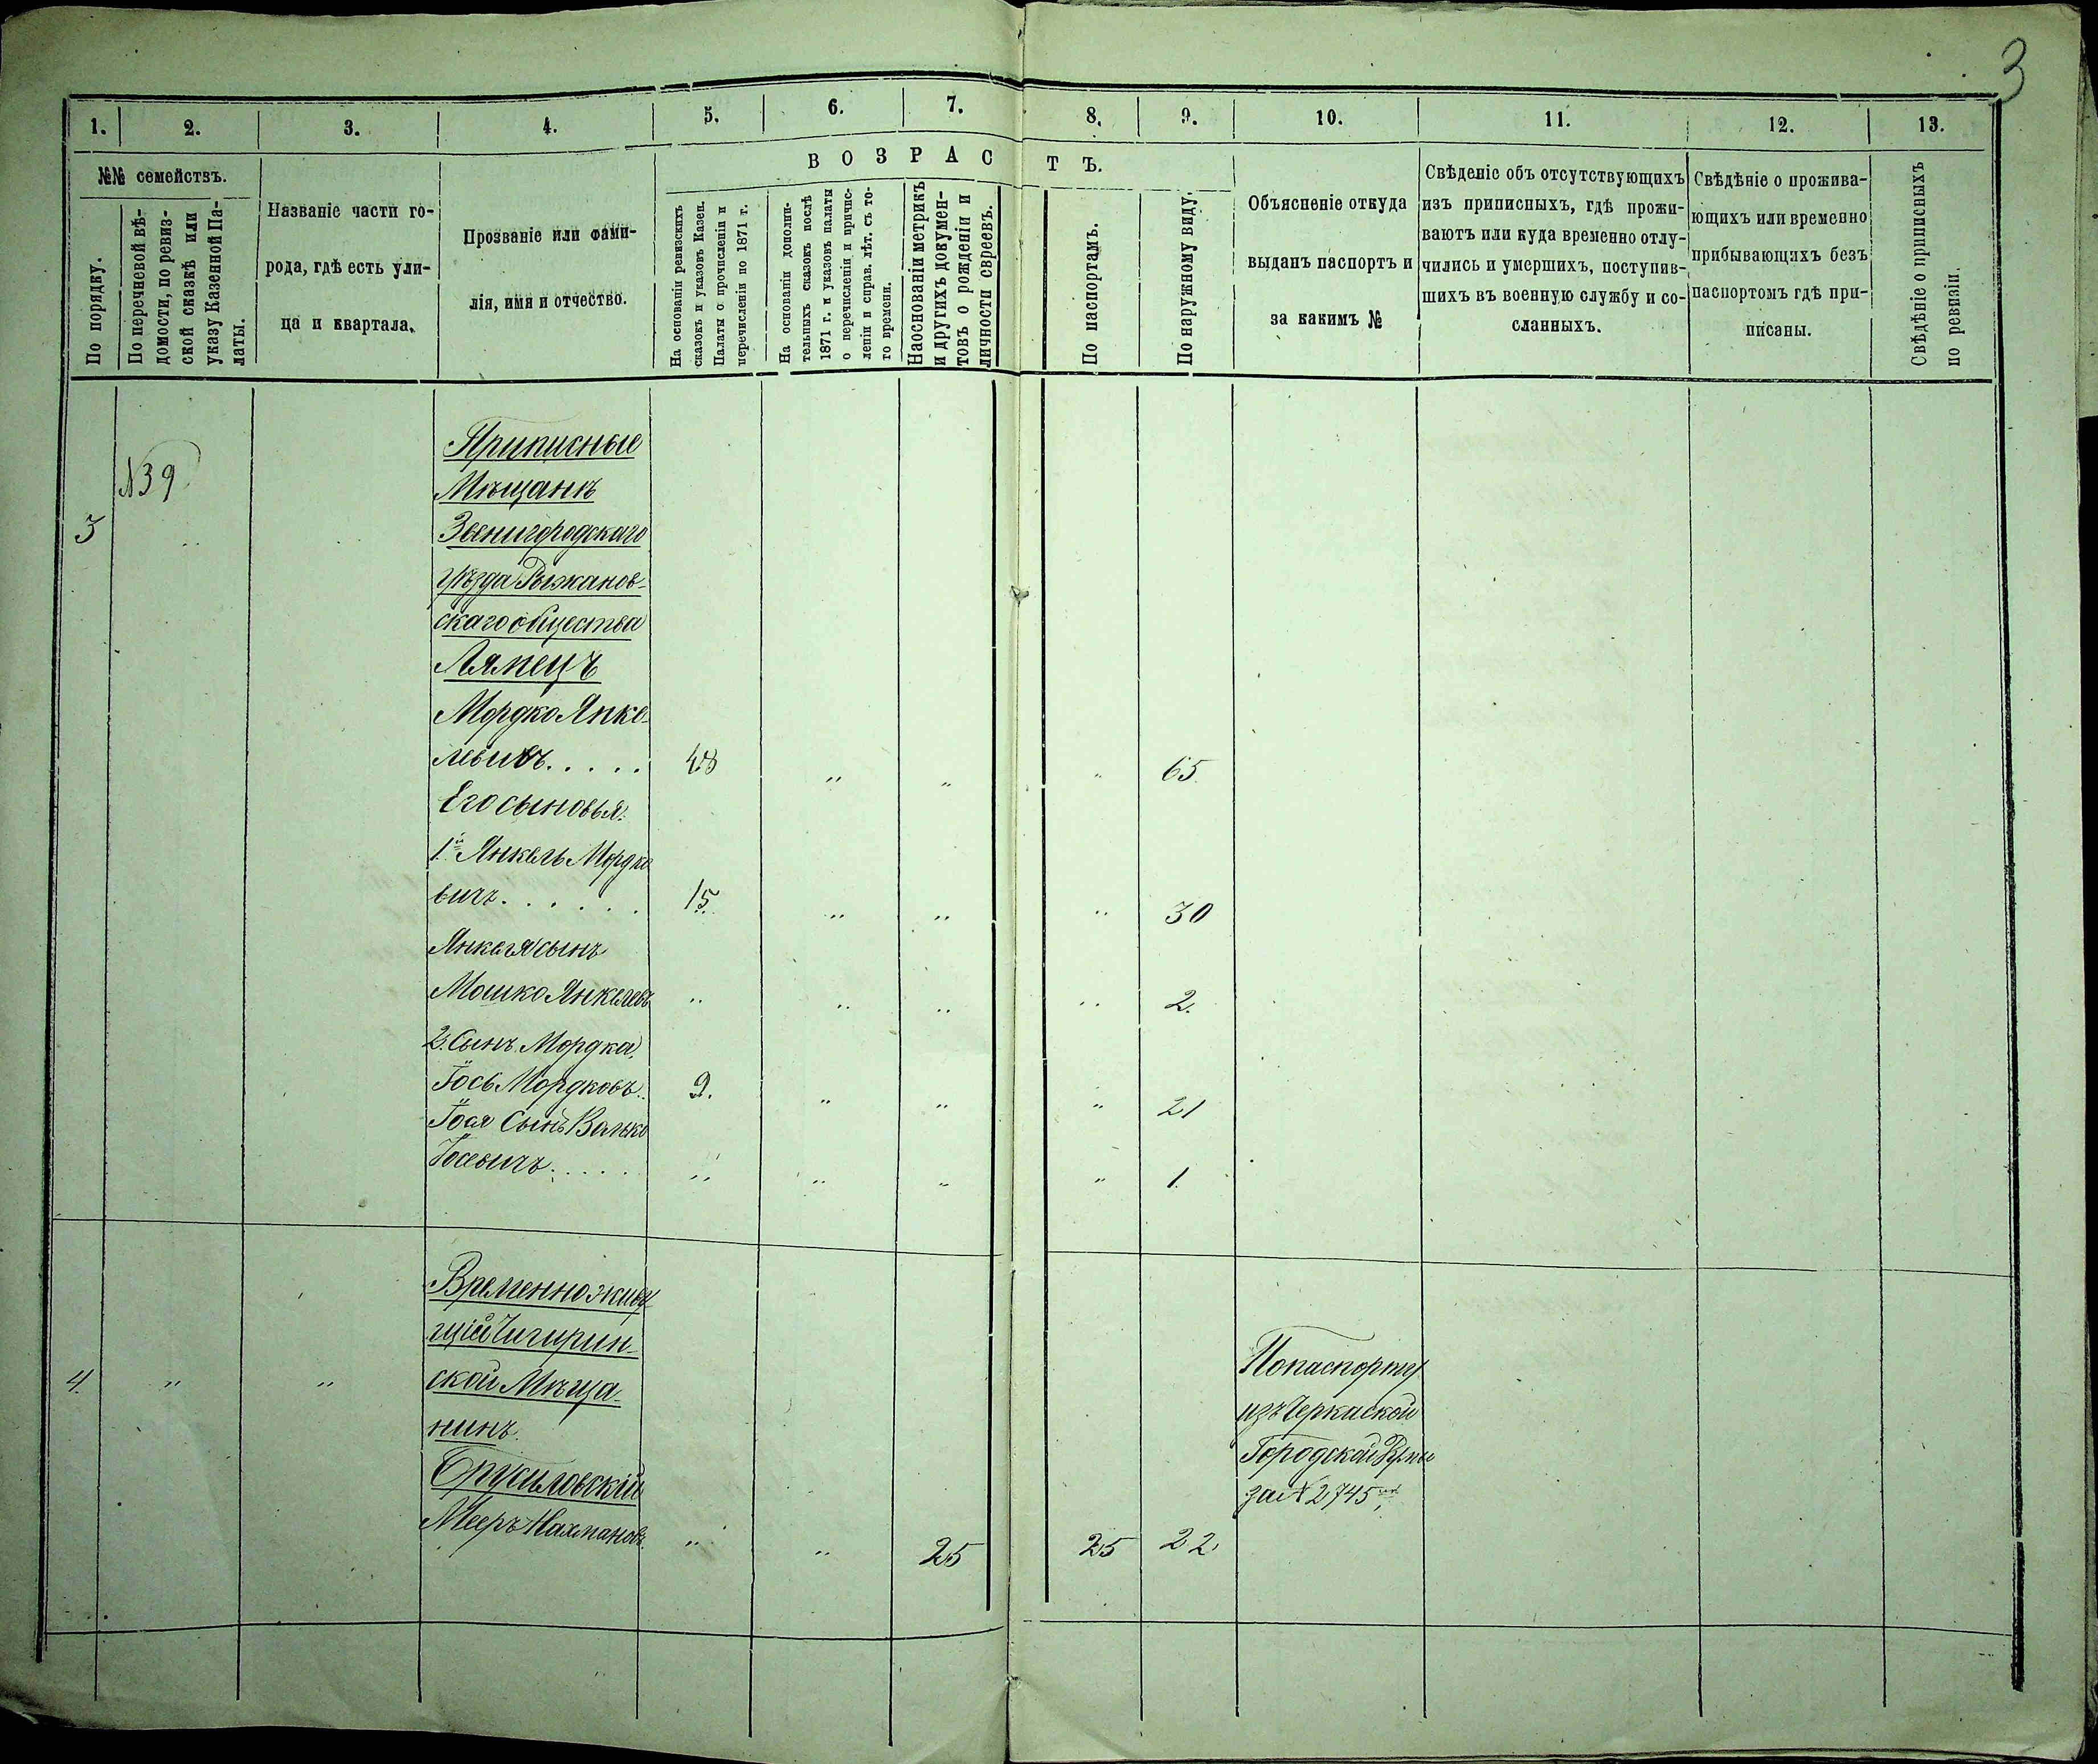 3
1. 2. 3. 4. 5. 6. 7. 8. 9. 10. 11. 12. 13.
№№ семействъ.
По порядку.
По перечневой вѣ-
домости, по ревиз-
ской сказкѣ или
указу Казенной Па-
латы.
Названіе части го-
рода, гдѣ есть ули-
ца и квартала.
Прозваніе или фами-
лія, имя и отчество.
ВОЗРАСТЪ.
На основаніи ревизскихъ
сказокъ и указовъ Казен.
Палаты о прочисленіи и
перечисленіи по 1871 г.
На основаніи дополни-
тельныхъ сказокъ послѣ
1871 г. и указовъ палаты
о перечисленіи и причис-
леніи и справ. лѣт. съ то-
го времени.
На основаніи метрикъ
и другихъ докумен-
товъ о рожденіи и
личности евреевъ.
По паспортамъ.
По наружному виду.
Объясненіе откуда
выданъ паспортъ и
за какимъ №
Свѣденіе объ отсутствующихъ
изъ приписныхъ, гдѣ прожи-
ваютъ или куда временно отлу-
чились и умершихъ, поступив-
шихъ въ военную службу и со-
сланныхъ.
Свѣдѣніе о прожива-
ющихъ или временно
прибывающихъ безъ
паспортомъ гдѣ при-
писаны.
Свѣдѣніе о приписныхъ
по ревизіи.
3 №39
Приписные
Мѣщанъ
Звенигородскаго
уѣзда Рыжанов-
скаго общества
Лямецъ
Мордко Янке-
левичъ..... 48 " " " 65.
Его сыновья:
1й Янкель Мордко
вичъ...... 15. " " " 30
Янкеля сынъ
Мошко Янкелевъ " " " " 2.
2. Сынъ Мордка,
Іось Мордковъ.. 9. " " " 21
Іося Сынъ Волько
Іосевичъ..... " " " " 1.
4. " "
Временно живу
щій Чигирин-
ской Мѣща-
нинъ.
Брусиловскій
Мееръ Нахмановъ. " " 25 25 22.
По паспорту
изъ Черкаской
Городской
за № 2745